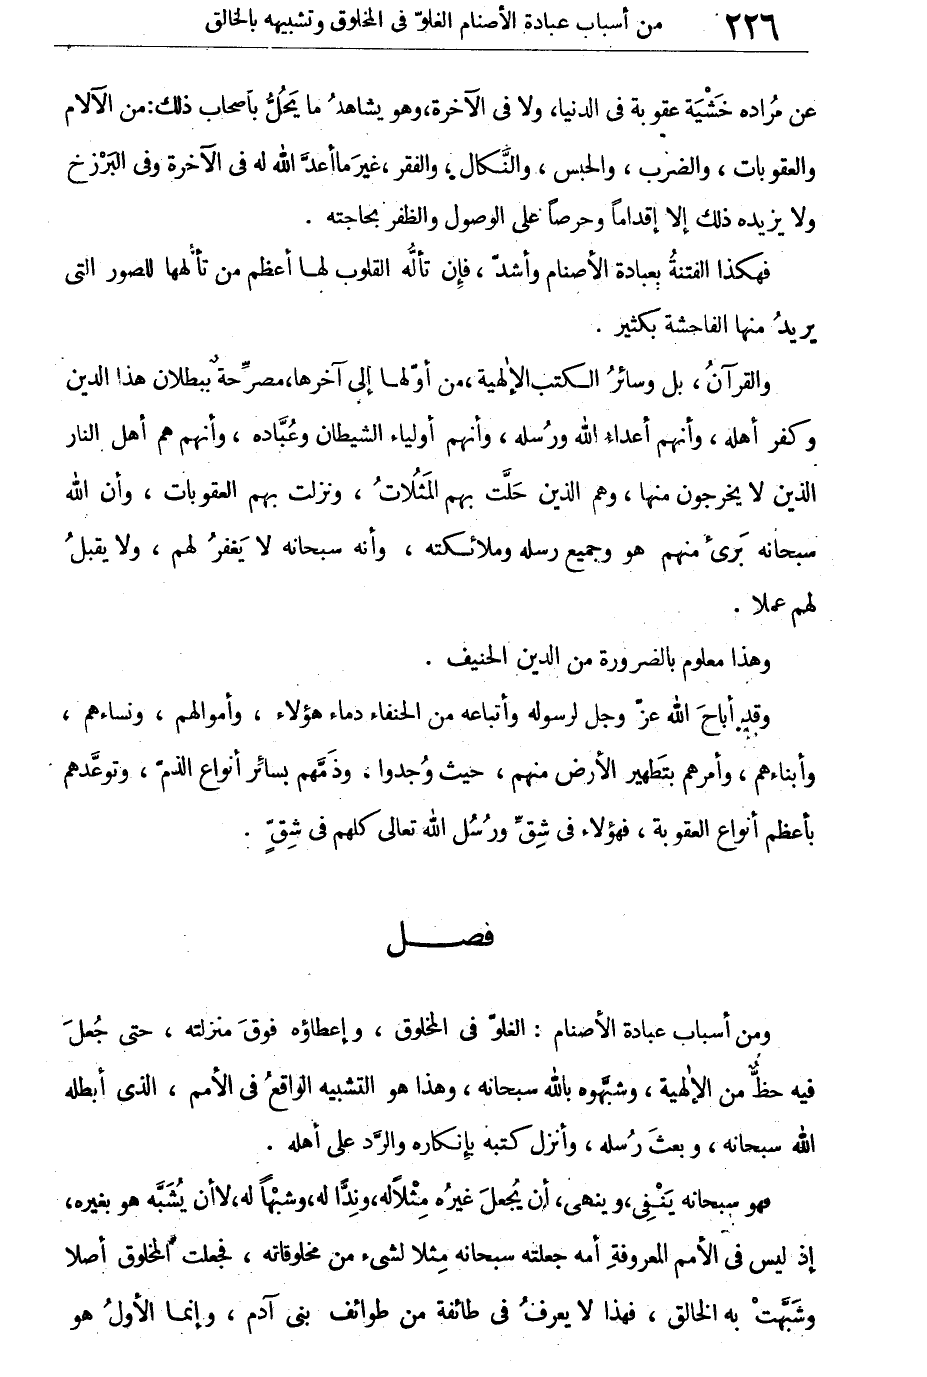 ٢٢٦ من أسباب عبادة الأصنام الغلوّ فى المخلوق وتشبيهه بالخالق
عن مُراده خَشْيَة عقوبة فى الدنيا، ولا فى الآخرة،وهو يشاهدُ ما يَحُلُّ بأصحاب ذلك:من الآلام
والعقوبات ، والضرب ، والحبس ، والنَّكال ، والفقر ،غيرَ ماأعدَّ الله له فى الآخرة وفى البَرْزخ
ولا يزيده ذلك إلا إقداماً وحرصاً على الوصول والظفر بحاجته .
فهكذا الفتنةُ بعبادة الأصنام وأشدّ ، فإن تألُّه القلوب لهـا أعظم من تألهها للصور التى
يريدُ منها الفاحشة بكثير .
والقرآنُ ، بل وسائرُ الكتب الإلهية ،من أوّلهـا إلى آخرها،مصرِّحةٌ ببطلان هذا الدين
وكفر أهله ، وأنهم أعداء الله ورُسله ، وأنهم أولياء الشيطان وعُبَّاده ، وأنهم هم أهل النار
الذين لا يخرجون منها ، وهم الذين حَلَّت بهم المَثُلاتُ ، ونزلت بهم العقوبات ، وأن الله
سبحانه بَرىءٌ منهم هو وجميع رسله وملائكته ، وأنه سبحانه لا يَغفرُ لهم ، ولا يقبلُ
لهم عملا .
وهذا معلوم بالضرورة من الدين الحنيف .
وقد أباحَ الله عزّ وجل لرسوله وأتباعه من الحنفاء دماء هؤلاء ، وأموالهم ، ونساءهم ،
وأبناءهم ، وأمرهم بتطهير الأرض منهم ، حيث وُجدوا ، وذمَّهم بسائر أنواع الذمّ ، وتوعَّدهم
بأعظم أنواع العقوبة ، فهؤلاء فى شِقٍّ ورُسُل الله تعالى كلهم فى شِقٍّ .
فصـــل
ومن أسباب عبادة الأصنام : الغلوّ فى المخلوق ، وإعطاؤه فوقَ منزلته ، حتى جُعلَ
فيه حظٌّ من الإلهية ، وشبَّهوه بالله سبحانه ، وهذا هو التشبيه الواقعُ فى الأمم ، الذى أبطله
الله سبحانه ، وبعثَ رُسله ، وأنزل كتبه بإنكاره والرَّد على أهله .
فهو سبحانه يَنْفِى،وينهى، أن يُجعلَ غيرُه مِثْلاًله،ونِدًّا له،وشبْهاً له،لاأن يُشَبَّه هو بغيره،
إذ ليس فى الأمم المعروفةِ أمه جعلته سبحانه مِثلا لشىء من مخلوقاته ، فجعلت المخلوق أصلا
وشَبَّهتْ به الخالق ، فهذا لا يعرفُ فى طائفة من طوائف بنى آدم ، وإنما الأولُ هو